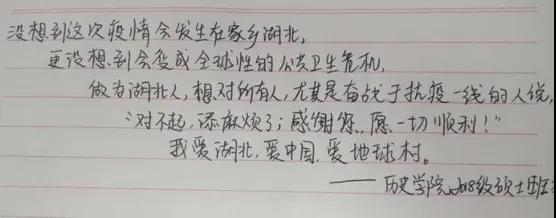 没想到这次疫情会发生在家乡湖北,
更没想到会变成全球性的公共卫生危机,
做为湖北人,想对所有人,尤其是奋战于抗疫一线的人说,
“对不起,添麻烦了;感谢您,愿一切顺利!”
我爱湖北,爱中国,爱地球村。
——历史学院2018级硕士班